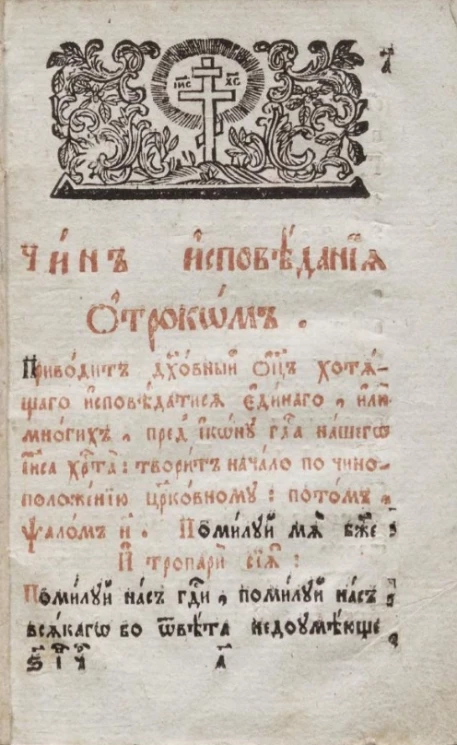 І҃ИС Х҃С
а҃
Чи́нъ и҆сповѣ́данїѧ
Ѻ҆трокѡ́мъ .
Приво́дитъ дх҃о́вный ѻ҆ц҃ъ хотѧ́-
щаго и҆сповѣ́датисѧ є҆ди́наго , и҆лѝ
мно́гихъ , пред̾ і҆ко́ну гдⷭ҇а на́шегѡ
і҆и҃са хрⷭ҇та̀ : твори́тъ нача́ло по чино-
положе́нїю цр҃ко́вному : пото́мъ ,
ѱало́мъ н҃ . Поми́луй мѧ̀ бж҃е
И҆ тропарѝ сїѧ̑ :
Поми́луй на́съ гдⷭ҇и , поми́луй на́съ
всѧ́кагѡ бо ѿвѣ́та недоумѣ́юще
а҃